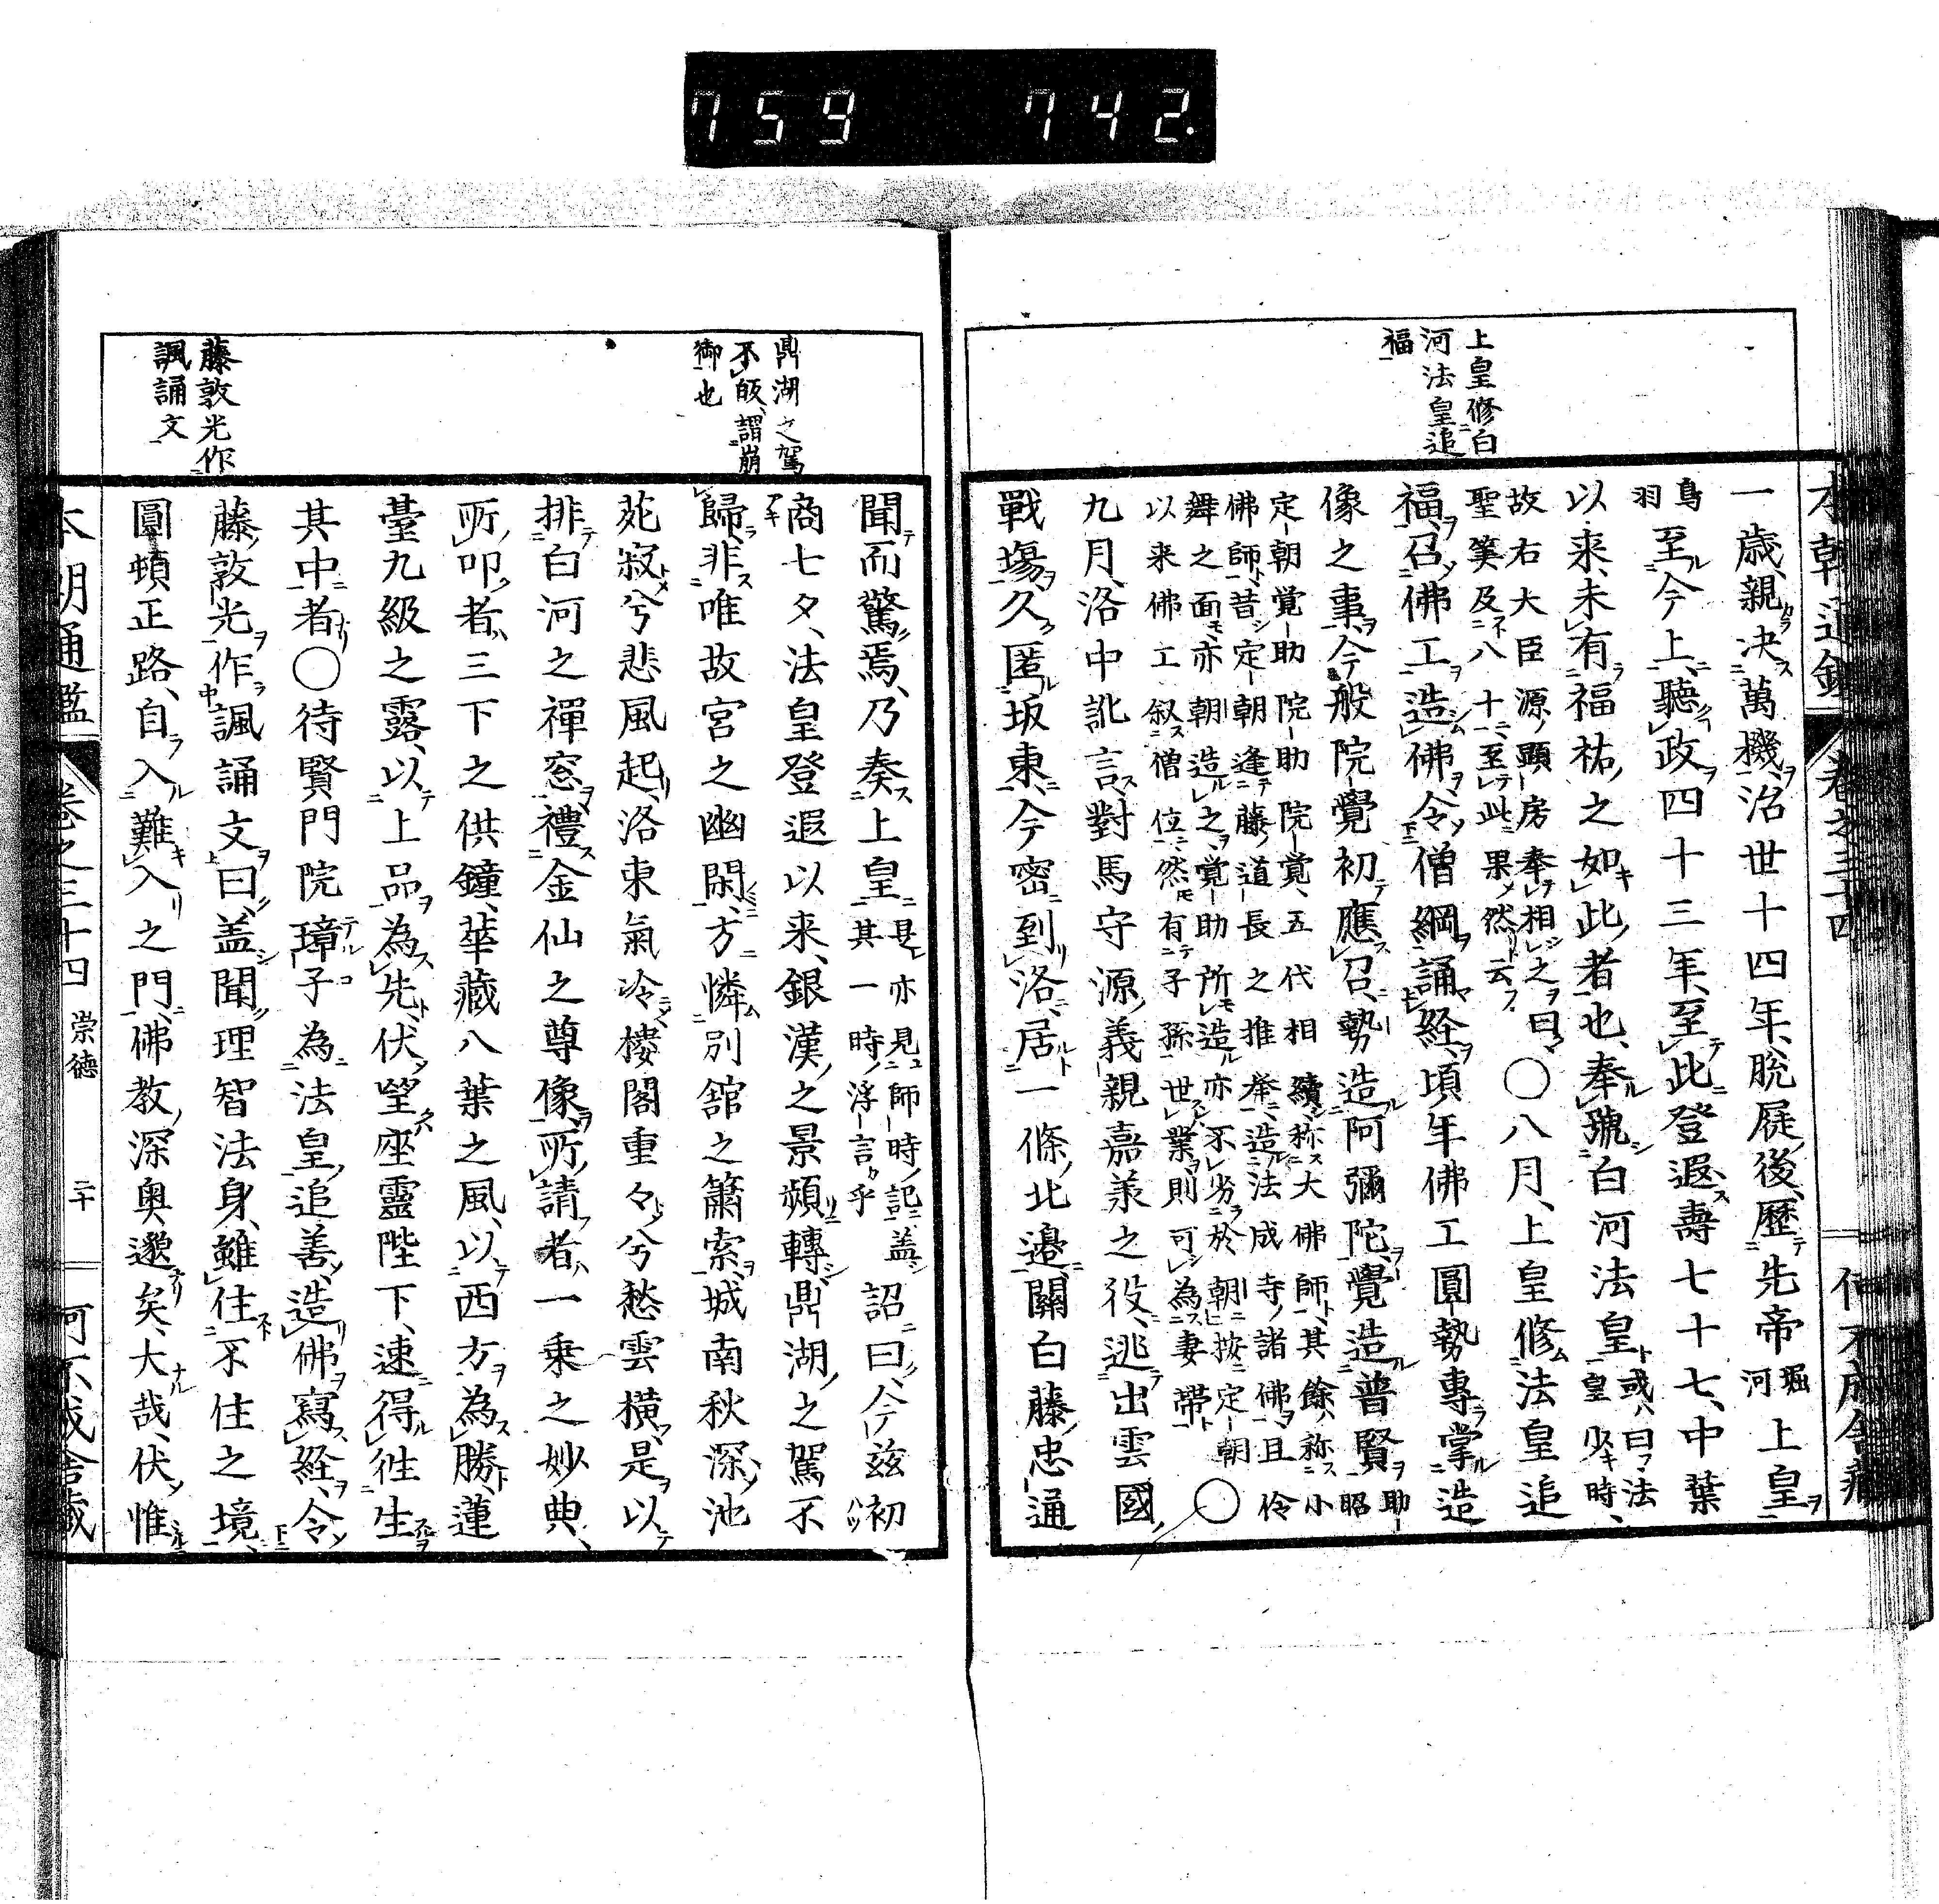 759 742.
本朝通鑑 卷之三十四
上皇修白
河法皇追
福
一歳、親決萬機、治世十四年、脱屣後、歷先帝堀河上皇
鳥羽至今上、聽政四十三年、至此登遐、壽七十七、中葉
以来、未有福祐之如此者也、奉號白河法皇或曰、法皇少時、
故右大臣源顯房奉相之曰、聖筭及八十、至此果然云〇八月、上皇修法皇追
福、召佛工造佛、令僧綱誦経、頃年佛工圓勢專掌造
像之事、今般院覺初應召、勢造阿彌陀、覺造普賢助昭
定朝覚助院助院覚、五代相續、称大佛師、其餘称小
佛師、昔定朝逢藤道長之推挙、造法成寺諸佛、且伶
舞之面、亦朝造之、覚助所造亦不劣於朝、按定朝
以来佛工叙僧位、然有子孫世業、則可為妻帶〇
九月、洛中訛言、對馬守源義親嘉羕之役、逃出雲國
戰塲、久匿坂東、今密到洛、居一條北邊、關白藤忠通
鼎湖之駕
不皈、謂崩
御也
藤敦光作
諷誦文
聞而驚焉、乃奏上皇是亦見師時記、蓋其一時浮言乎詔曰、今茲初
商七夕、法皇登遐以来、銀漢之景頻轉、鼎湖之駕不
歸、非唯故宮之幽閑、方憐別舘之簫索、城南秋深、池
苑寂兮悲風起、洛東氣冷、樓閣重々兮愁雲横、是以
排白河之禪窓、禮金仙之尊像、所請者、一乗之妙典、
所叩者、三下之供鐘、華藏八葉之風、以西方為勝、蓮
臺九級之露、以上品為先、伏望座靈陛下、速得徃生
其中者〇待賢門院璋子為法皇追善、造佛寫経、令
藤敦光作諷誦文曰、蓋聞理智法身、雖住不住之境、
圓頓正路、自入難入之門、佛教深奥邈矣、大哉、伏惟
本朝通鑑 卷之三十四 崇德 二十